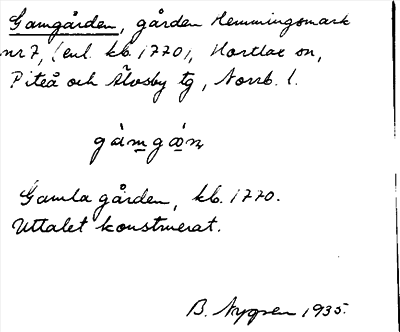 Gamgården, gården Hemmingsmark
nr 7, (enl. kb. 1770), Hortlax sn,
Piteå och Älvsby tg, Norrb. l.
gàmgǻn
Gamla gården, kb. 1770.
Uttalet konstruerat.
B. Nygren 1935.